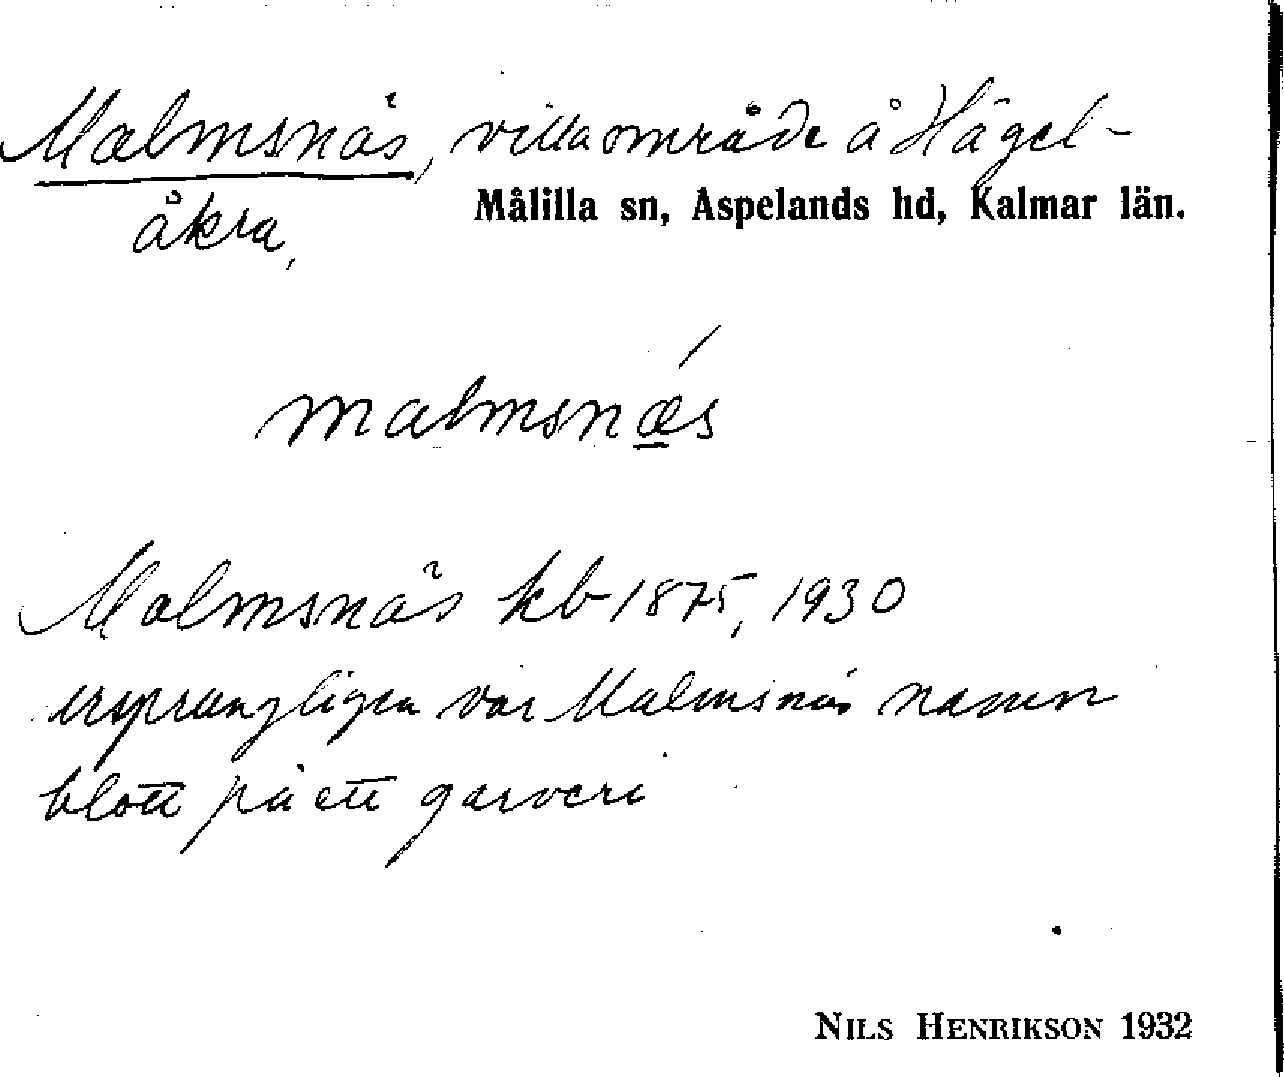 Malmsnäs, villaområde å Hägel-
åkra,
Målilla sn, Aspelands hd, Kalmar län.
malmsnǽs
Malmsnäs kb 1875, 1930
ursprungligen var Malmsnäs namn
blott på ett garveri
NILS HENRIKSON 1932